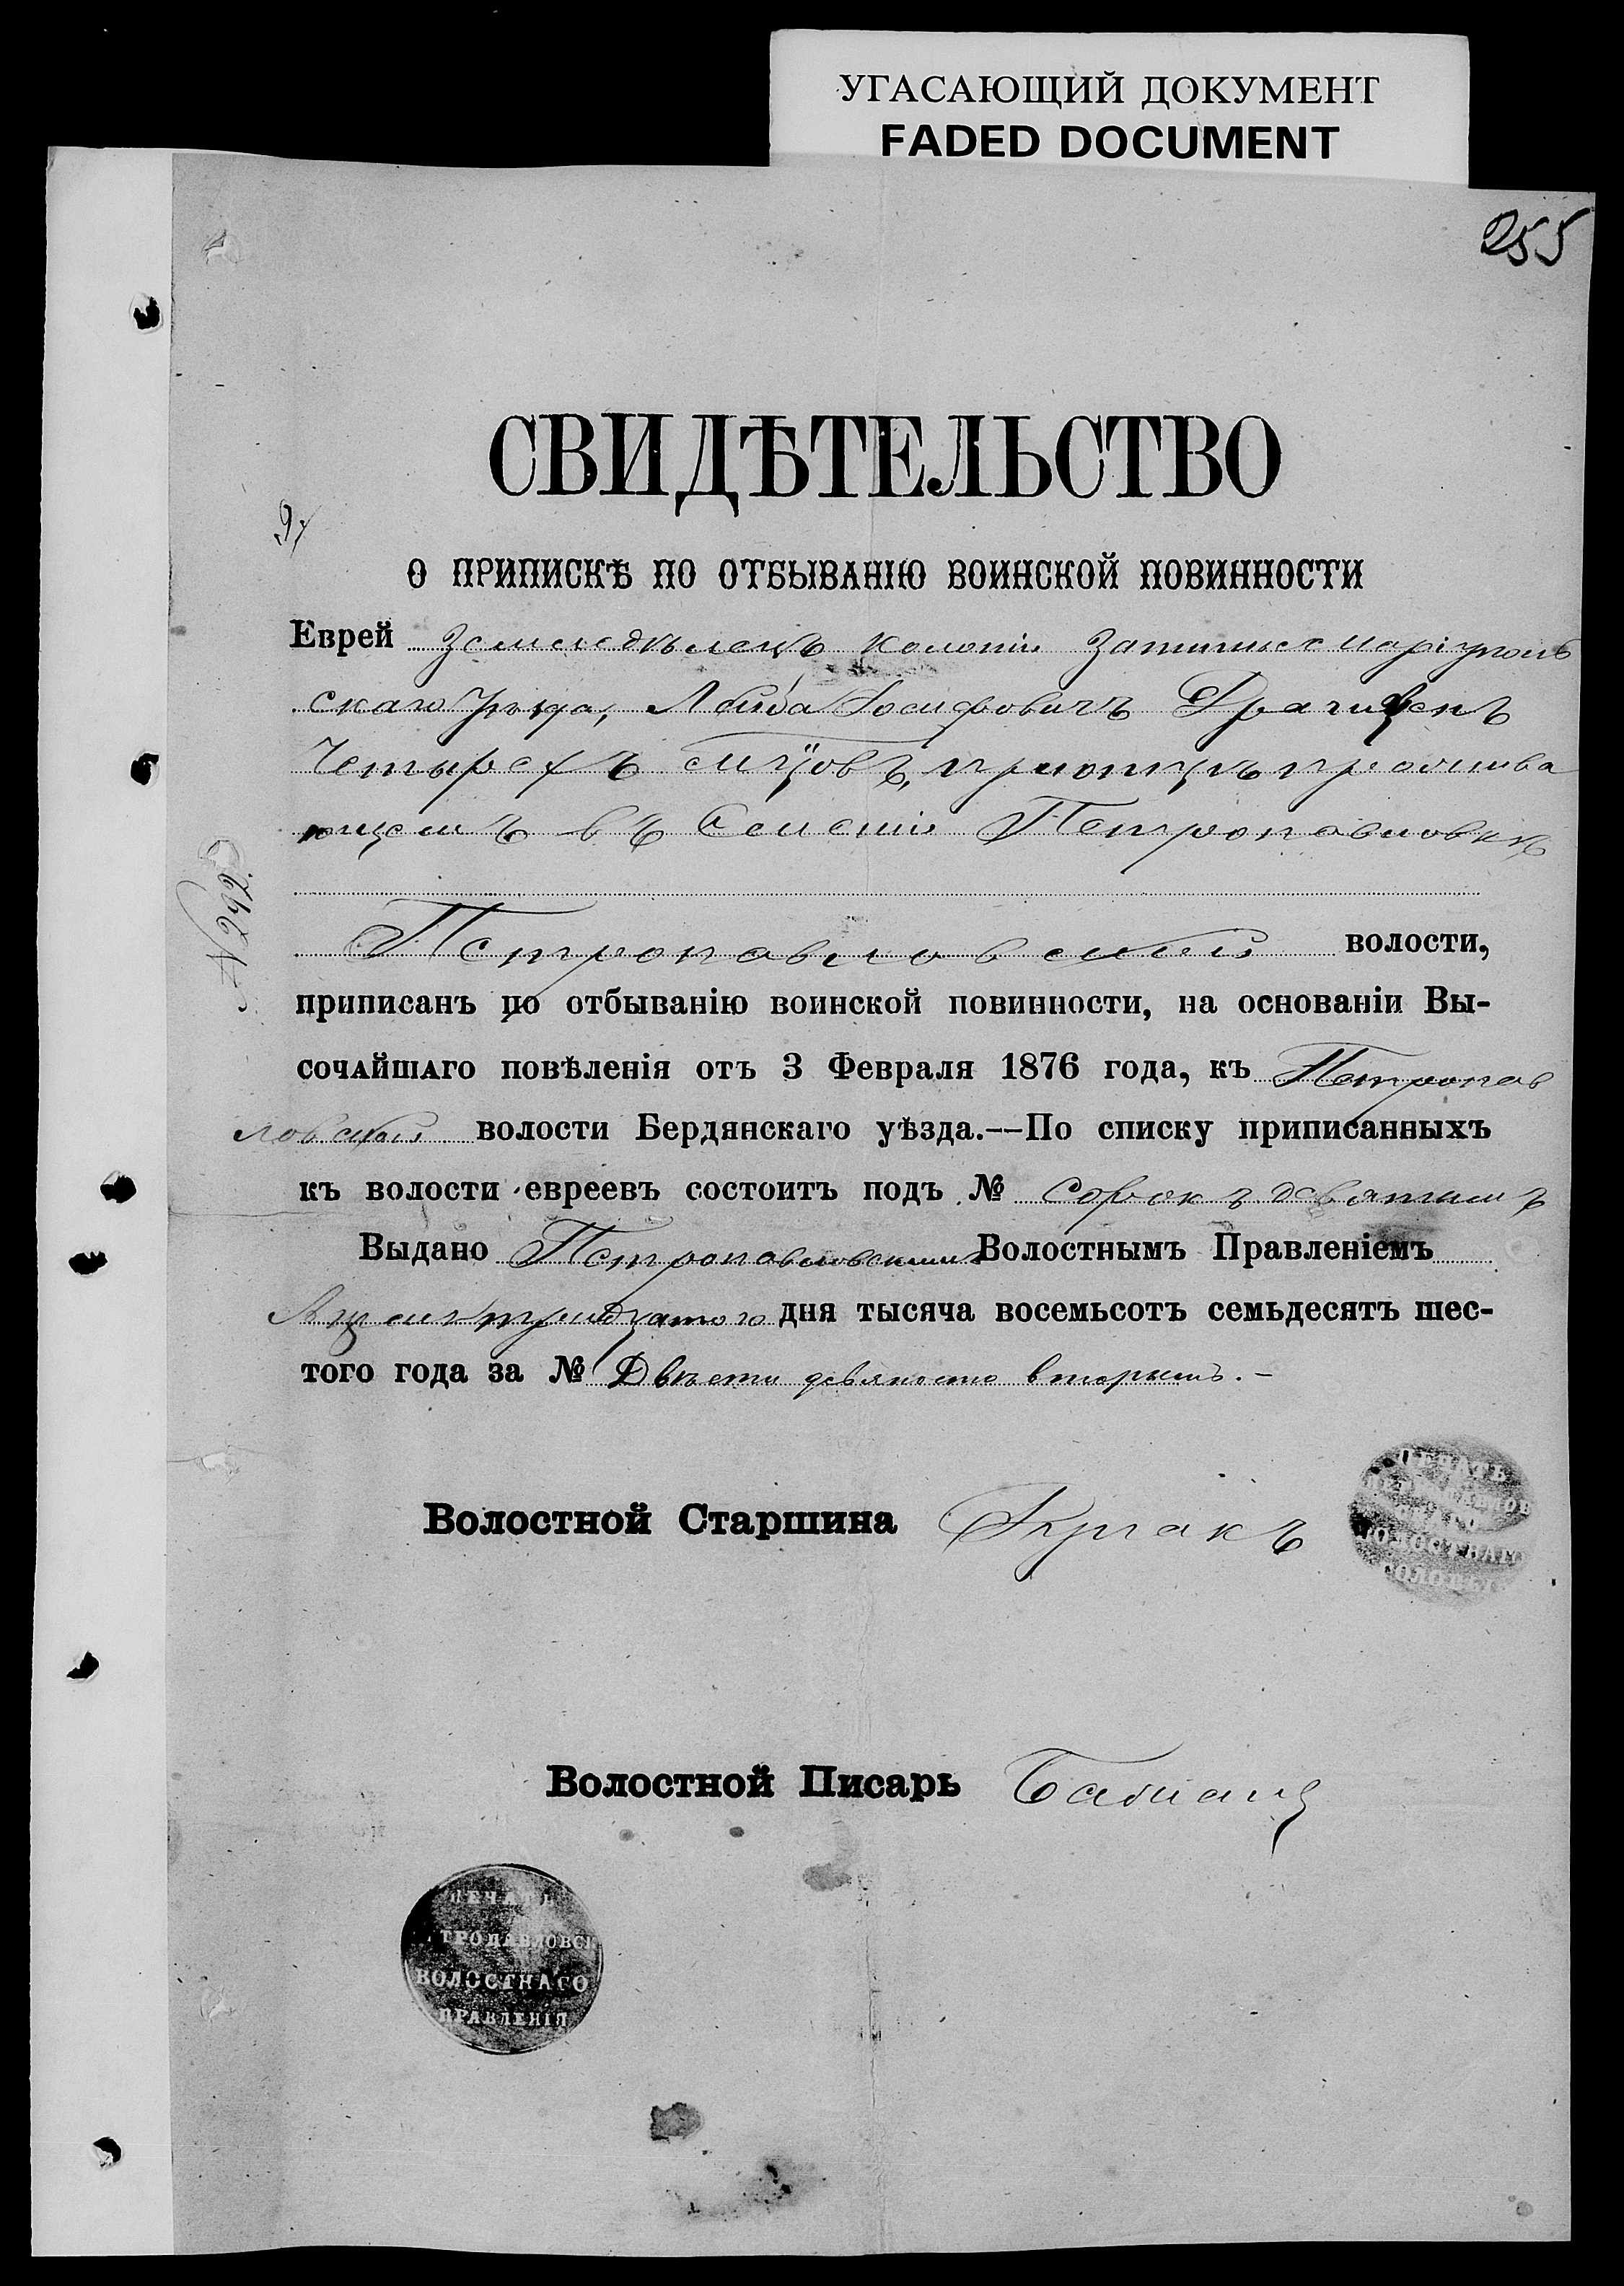 УГАСАЮЩИЙ ДОКУМЕНТ
FADED DOCUMENT
255
СВИДѢТЕЛЬСТВО
О ПРИПИСКѢ ПО ОТБЫВАНІЮ ВОИНСКОЙ ПОВИННОСТИ
Еврей Земледѣлецъ колоніи Затишье Маріуполь
скаго Уѣзда, Лейба Іосифовичъ
Четырехъ
ющемъ въ Селеніи Петропавловкѣ
№ 292
Петропавловской волости,
приписанъ по отбыванію воинской повинности, на основаніи Вы-
сочайшаго повѣленія отъ 3 Февраля 1876 года, къ Петропав
ловской волости Бердянскаго уѣзда.--По списку приписанныхъ
къ волости евреевъ состоитъ подъ № Сорокъ девятымъ
Выдано Петропавловскимъ Волостнымъ Правленіемъ
тридцатого дня тысяча восемьсотъ семьдесятъ шес-
того года за № Двѣсти девяносто вторымъ. -
Волостной Старшина
ПЕЧАТЬ
ВОЛОСТНАГО
Волостной Писарь
ПЕЧАТЬ
ТРОПАВЛОВСК
ВОЛОСТНАГО
ПРАВЛЕНІЯ